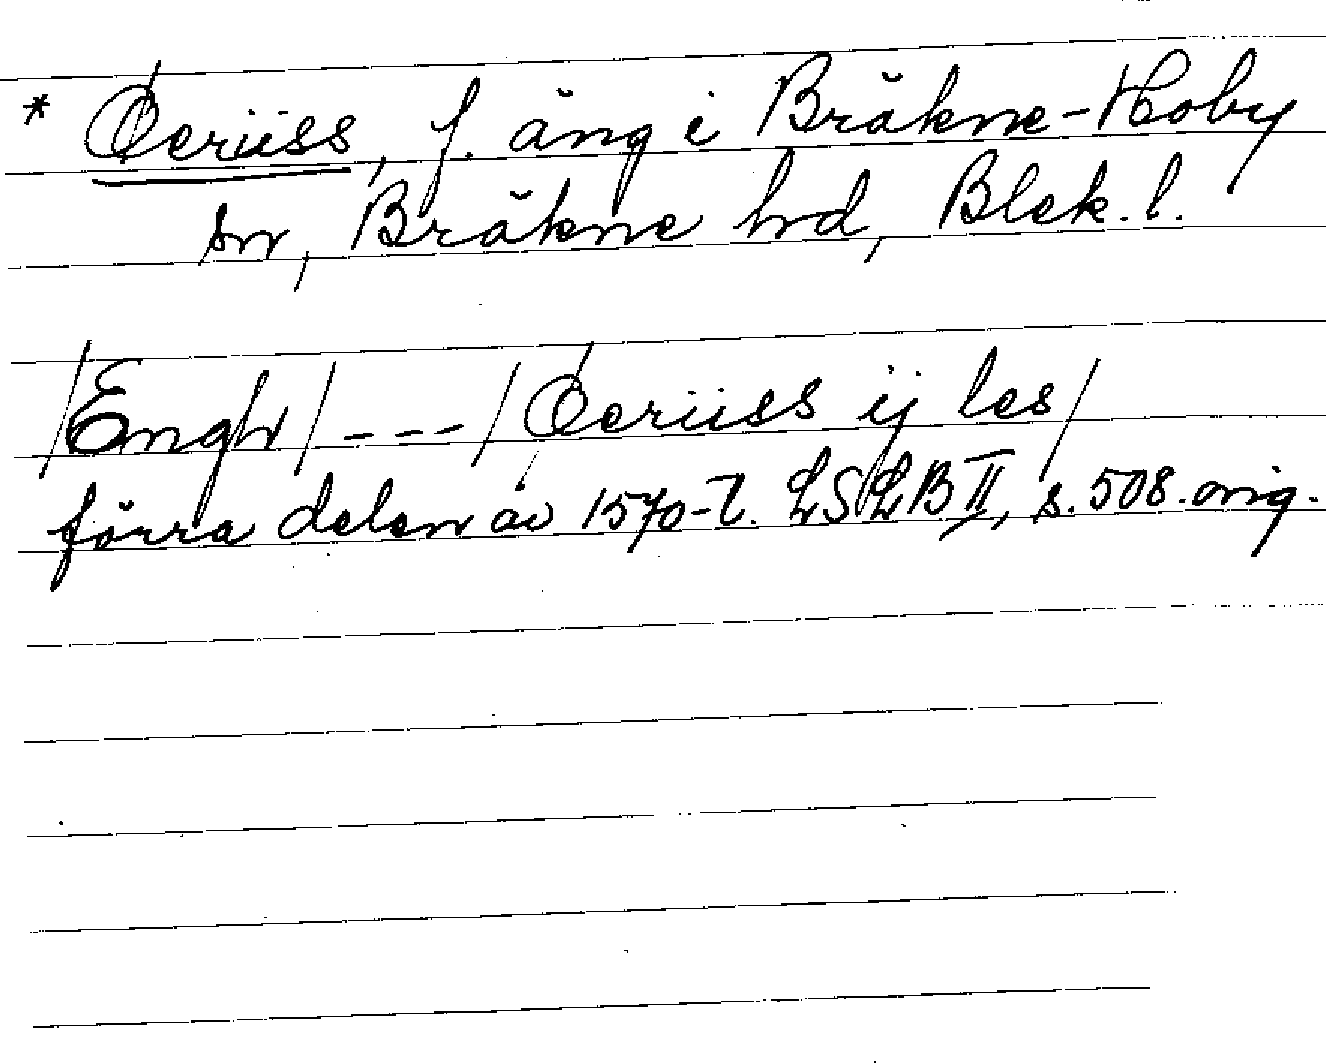 * Øeriiss, f. äng i Bräkne-Hoby
sn, Bräkne hd, Blek. l.
/Engh/ --- /Øeriiss ij les/
förra delen av 1570-t. LSLB II, s. 508. orig.